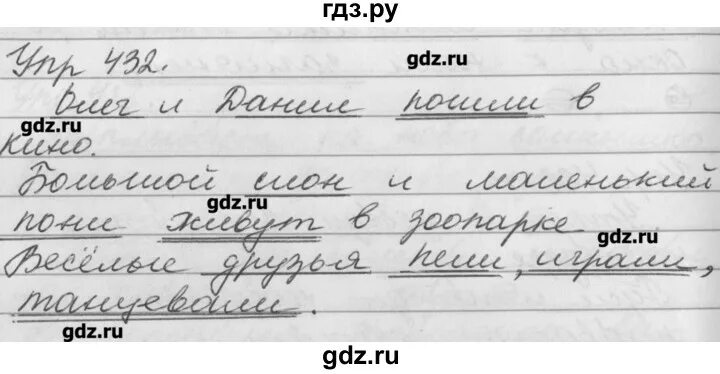 гдз.ру
gdz.ru
Упр 432.
gdz.ru
Олег и Данил пошли в
gdz.ru
кино.
Большой слон и маленький
gdz.ru
пони живут в зоопарке
gdz.ru
Весёлые друзья пели, играли,
танцевали.
gdz.ru
gdz.ru